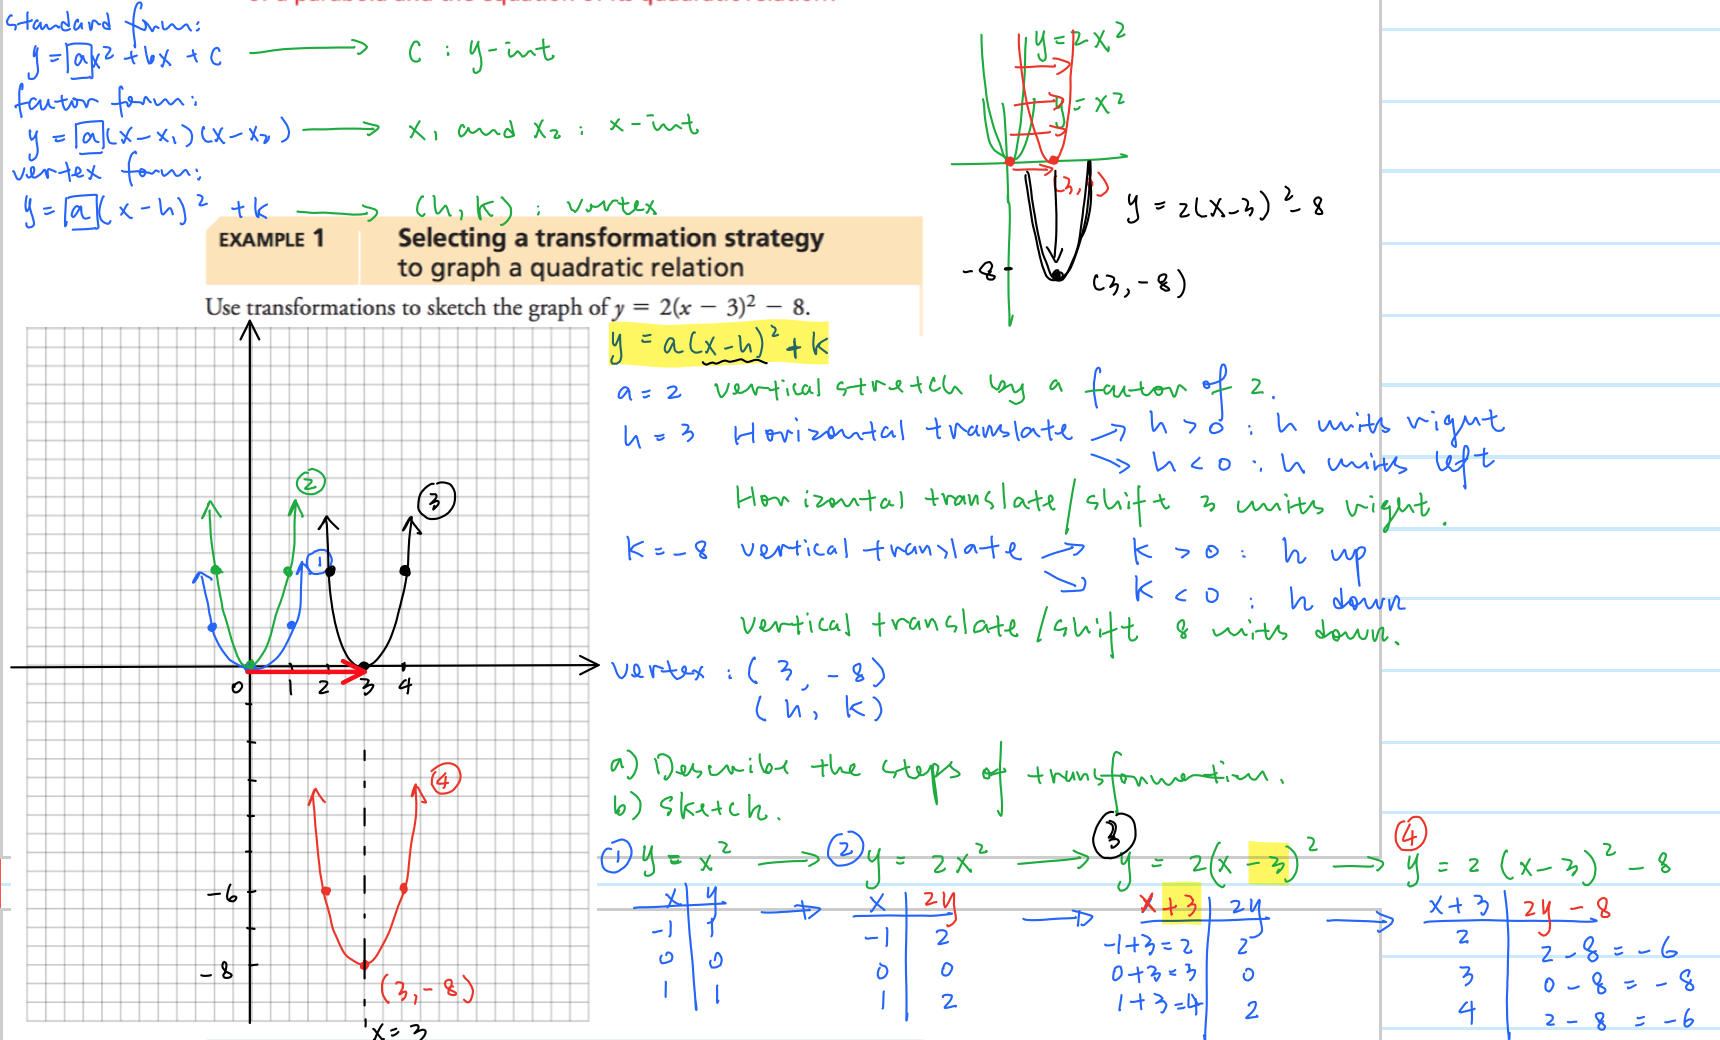 of a parabola and the equation of its quadratic relation.
standard form:
y = ax² + bx + c → c : y-int
factor form:
y = a(x-x₁)(x-x₂) → x₁ and x₂ : x-int
vertex form:
y = a(x-h)² + k → (h, k) : vertex
y = 2x²
y = x²
(3, )
y = 2(x-3)² - 8
-8
(3, -8)
EXAMPLE 1
Selecting a transformation strategy
to graph a quadratic relation
Use transformations to sketch the graph of y = 2(x − 3)² − 8.
y = a(x-h)² + k
a = 2 vertical stretch by a factor of 2.
h = 3 Horizontal translate → h > 0 : h units right
→ h < 0 : h units left
Horizontal translate / shift 3 units right.
k = -8 vertical translate → k > 0 : h up
→ k < 0 : h down
vertical translate / shift 8 units down.
vertex : (3, -8)
(h, k)
② ③
①
0 1 2 3 4
④
-6
-8
(3, -8)
x = 3
a) Describe the steps of transformation.
b) sketch.
① y = x² → ② y = 2x² → ③ y = 2(x-3)² → ④ y = 2(x-3)² - 8
x | y → x | 2y → x+3 | 2y → x+3 | 2y - 8
-1 | 1 -1 | 2 -1+3=2 | 2 2 | 2-8 = -6
0 | 0 0 | 0 0+3=3 | 0 3 | 0-8 = -8
1 | 1 1 | 2 1+3=4 | 2 4 | 2-8 = -6